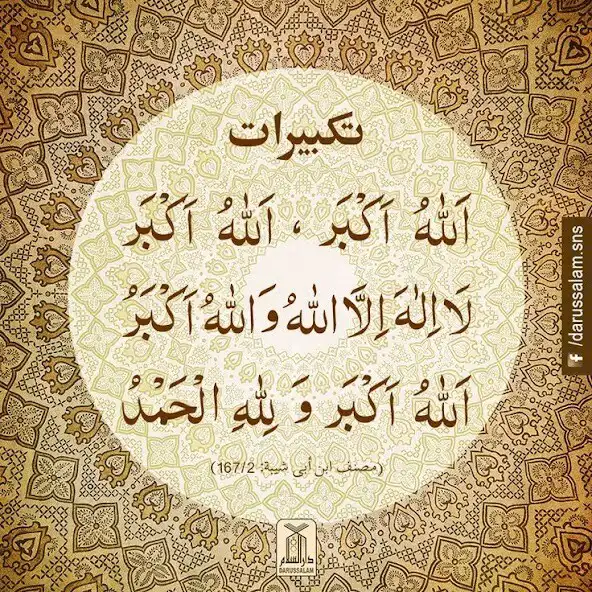 تكبيرات
اَللهُ اَكْبَر ، اَللهُ اَكْبَر
لَا اِلٰهَ اِلَّا اللهُ وَاللهُ اَكْبَرُ
اَللهُ اَكْبَر وَ لِلهِ الْحَمْدُ
(مصنف ابن أبى شيبة: 167/2)
/darussalam.sns
دارالسلام
DARUSSALAM